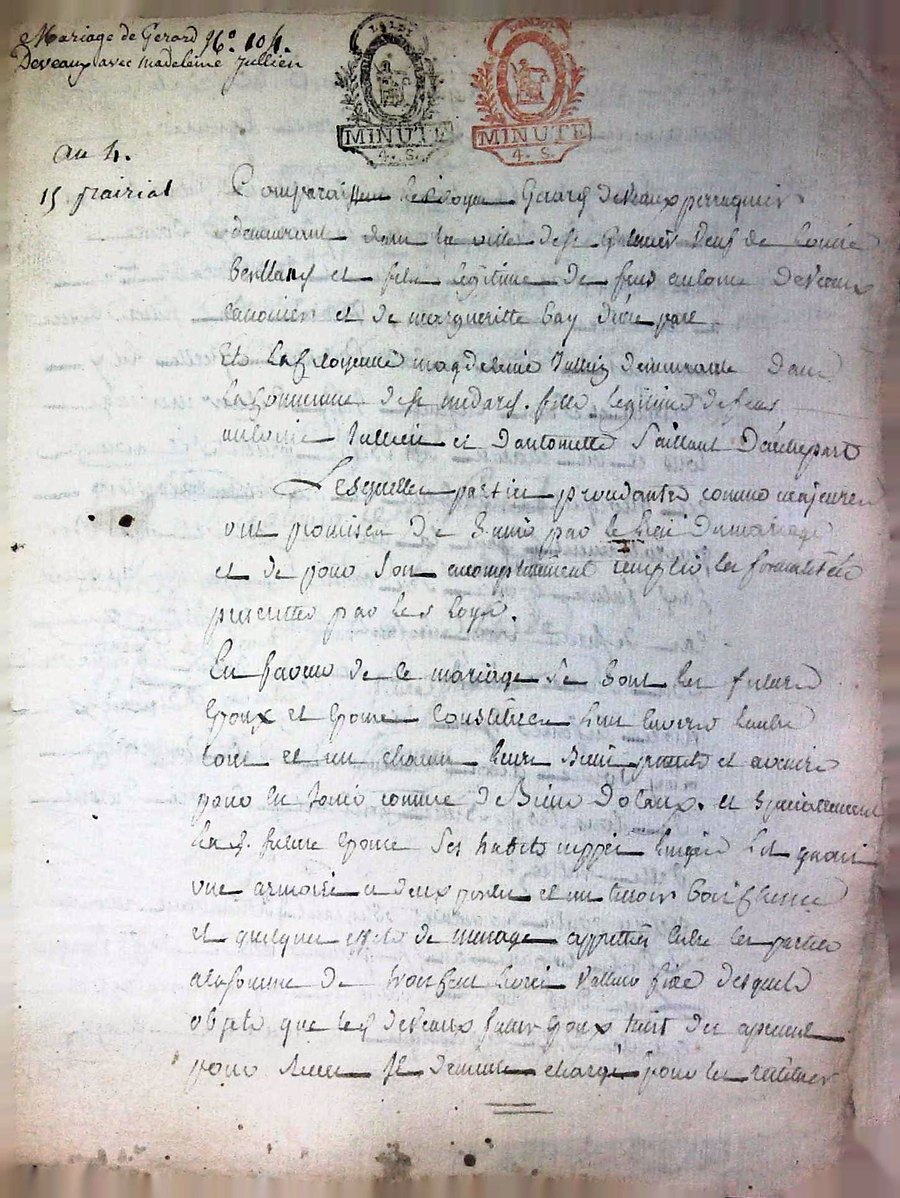 Mariage de Gerard N°. 104.
Deveaux avec madeleine Jullien
MINUTE
4. S.
MINUTE
4. S.
au 4.
15 prairial
Comparaissent le Citoyen Gerard deveaux perruquier
demeurant dans la ville de st Galmier veuf de Louise
et fils légitime de feus antoine Deveaux
et de margueritte bay d'une part
Et la Citoyenne magdeleine Jullien demeurante dans
la Commune de st medard. fille légitime de feus
antoine Jullien et d'antoinette Saillant D'autre part
Lesquelles parties procedantes comme majeures
ont promis de s'unir par le lien du mariage
et de pour son accomplissement remplir les formalités
prescrittes par les loyx.
En faveur de ce mariage se sont les futurs
Epoux et Epouse Constitués l'un envers l'autre
tous et un chacun leurs biens présents et avenir
pour en jouir comme de Biens Dotaux. et spécialement
la d. future épouse ses habits nippes linges lit garni
une armoire a deux portes et un tiroir bois
et quelques effets de menage apprétiés entre les parties
a la somme de trois cent livres valleur fixe desquels
objets que led deveaux futur époux
pour il demeure chargé pour les restituer